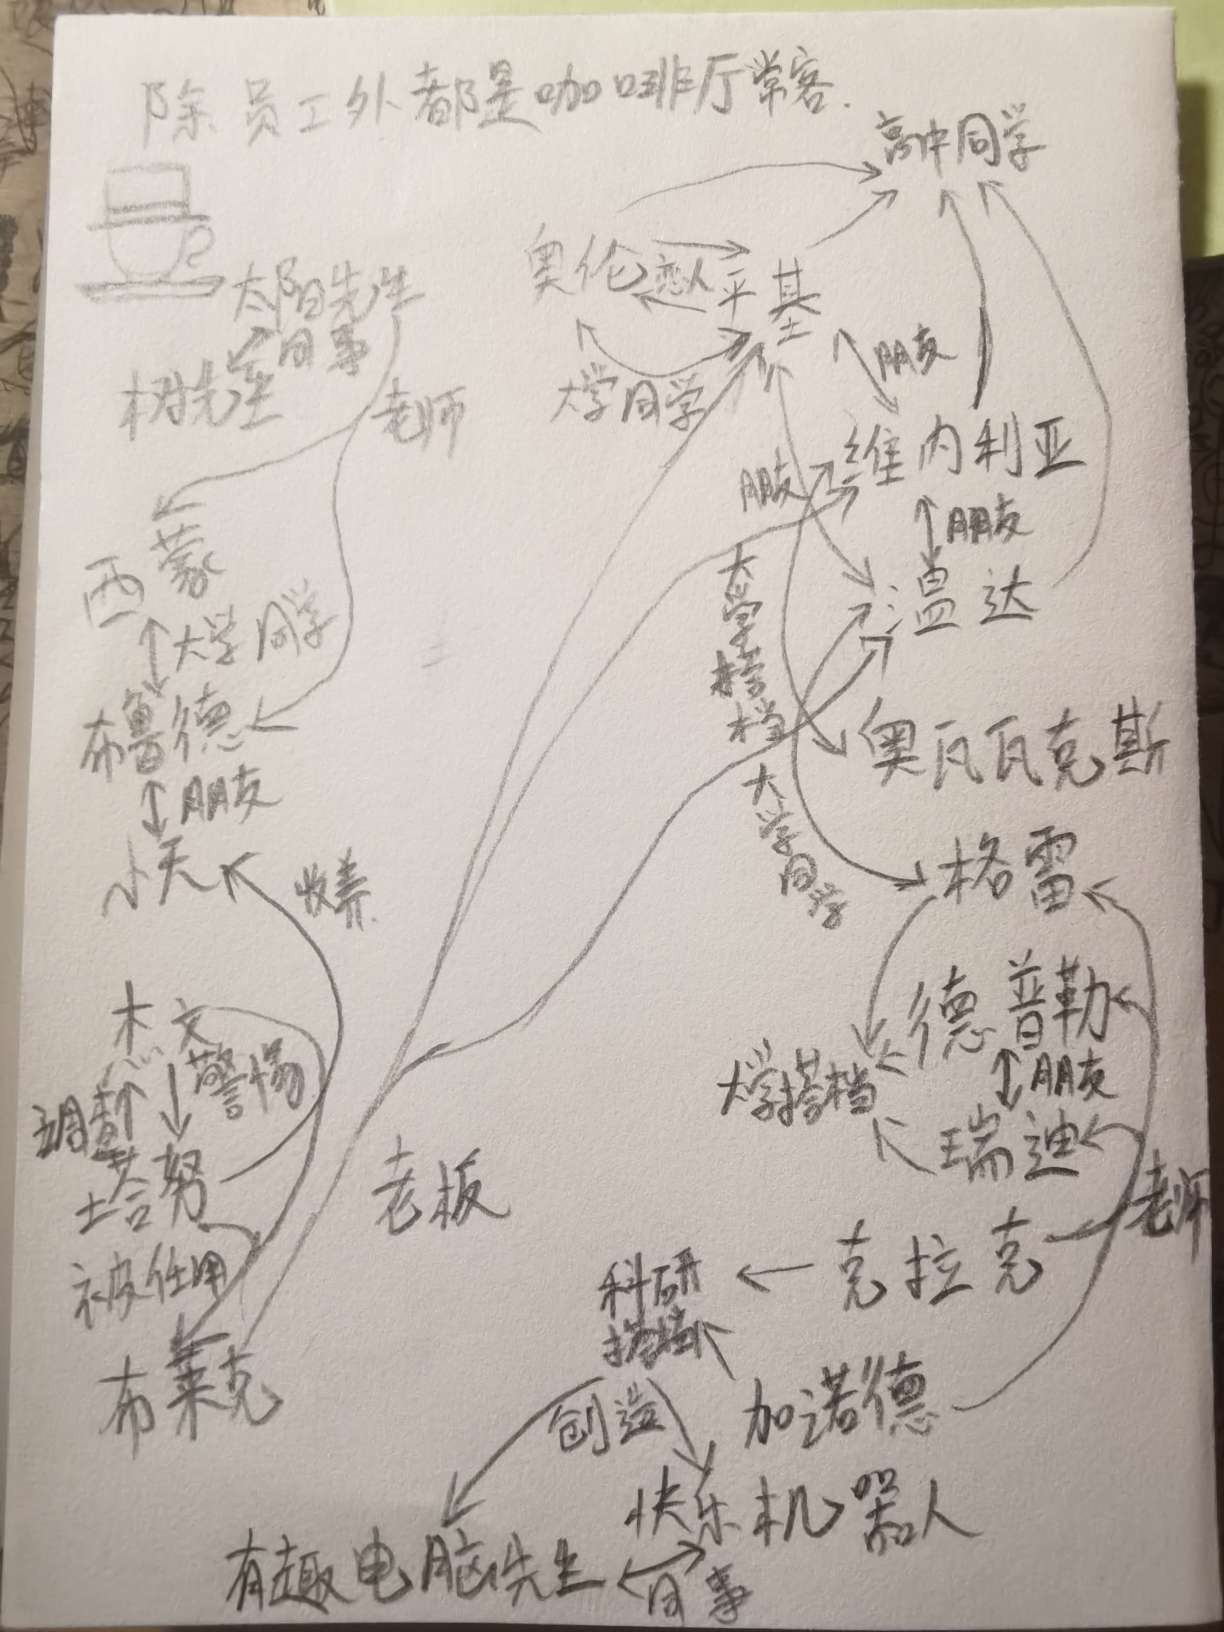 除员工外都是咖啡厅常客.
高中同学
奥伦 恋人 平基
太阳先生
同事
树先生
老师
大学同学
朋友
维内利亚
朋友
朋友
西蒙
大学搭档
温达
大学同学
布鲁德
奥瓦瓦克斯
朋友
大学同学
小天
收养
格雷
杰文
德普勒
警惕
调查
大学搭档
朋友
塔努
瑞迪
老板
老师
被任用
科研搭档
克拉克
布莱克
创造
加诺德
快乐机器人
有趣电脑先生
同事